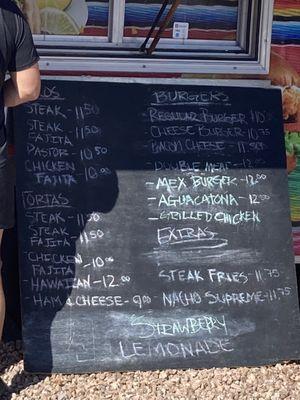 STEAK - 11.50
STEAK
FAJITA - 11.50
PASTOR - 10.50
CHICKEN
FAJITA - 10.00
TORTAS
STEAK - 11.50
STEAK
FAJITA - 11.50
CHICKEN - 10.00
FAJITA
HAWAIIAN - 12.00
HAM & CHEESE - 9.00
BURGERS
- REGULAR BURGER
- CHEESE BURGER 10.75
- BACON CHEESE - 11.50
- DOUBLE MEAT - 12.00
- MEX BURGER - 12.00
- AGUACATONA - 12.00
- GRILLED CHICKEN
EXTRAS
STEAK FRIES - 11.75
NACHO SUPREME - 11.75
STRAWBERRY
LEMONADE